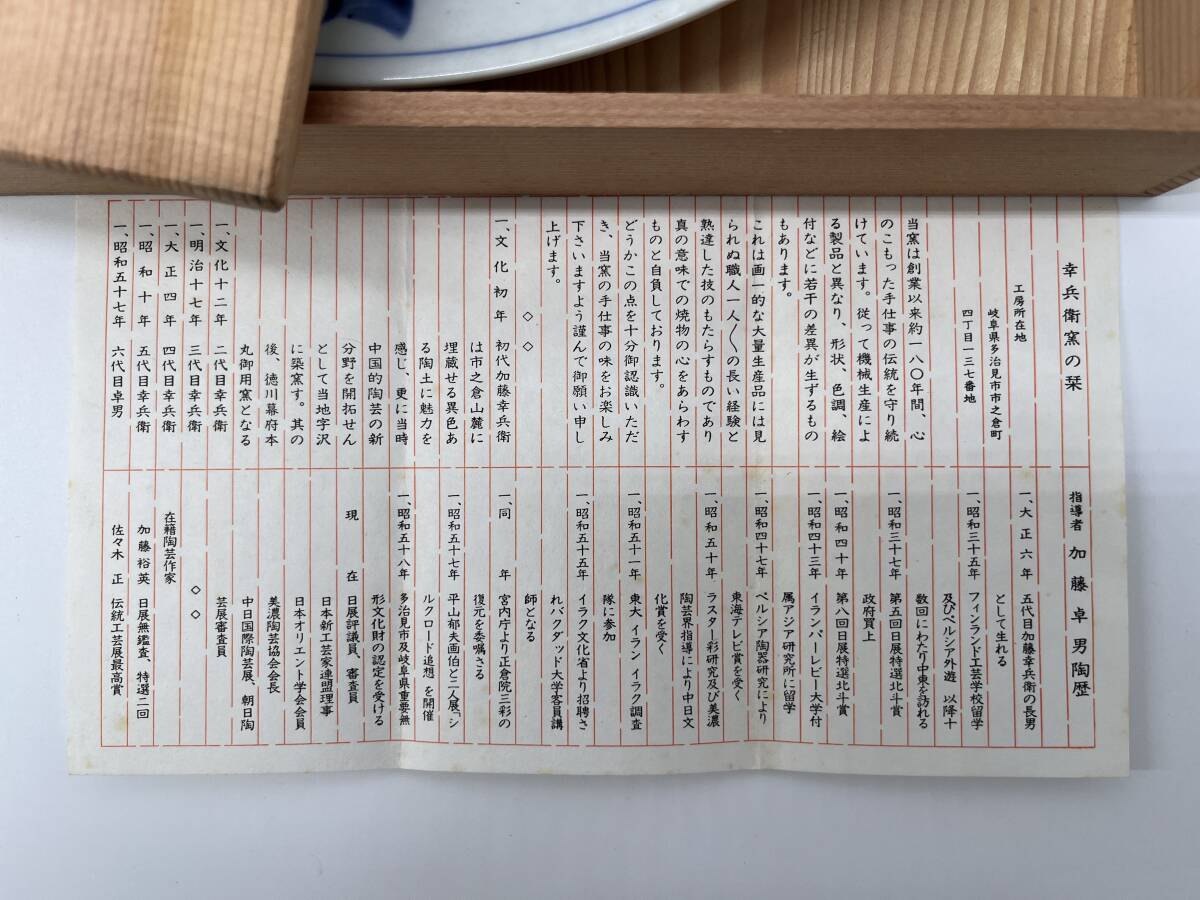 幸兵衛窯の栞
工房所在地
岐阜県多治見市市之倉町
四丁目一三七番地
当窯は創業以来約一八〇年間、心
のこもった手仕事の伝統を守り続
けています。従って機械生産によ
る製品と異なり、形状、色調、絵
付などに若干の差異が生ずるもの
もあります。
これは画一的な大量生産品には見
られぬ職人一人〱の長い経験と
熟達した技のもたらすものであり
真の意味での焼物の心をあらわす
ものと自負しております。
どうかこの点を十分御認識いただ
き、当窯の手仕事の味をお楽しみ
下さいますよう謹んで御願い申し
上げます。
◇◇
一、文化初年 初代加藤幸兵衛
は市之倉山麓に
埋蔵せる異色あ
る陶土に魅力を
感じ、更に当時
中国的陶芸の新
分野を開拓せん
として当地字沢
に築窯す。其の
後、徳川幕府本
丸御用窯となる
一、文化十二年 二代目幸兵衛
一、明治十七年 三代目幸兵衛
一、大正四年 四代目幸兵衛
一、昭和十年 五代目幸兵衛
一、昭和五十七年 六代目卓男
指導者 加藤卓男陶歴
一、大正六年 五代目加藤幸兵衛の長男
として生れる
一、昭和三十五年 フィンランド工芸学校留学
及びペルシア外遊 以降十
数回にわたり中東を訪れる
一、昭和三十七年 第五回日展特選北斗賞
政府買上
一、昭和四十年 第八回日展特選北斗賞
一、昭和四十三年 イランパーレビー大学付
属アジア研究所に留学
一、昭和四十七年 ペルシア陶器研究により
東海テレビ賞を受く
一、昭和五十年 ラスター彩研究及び美濃
陶芸界指導により中日文
化賞を受く
一、昭和五十一年 東大 イラン イラク調査
隊に参加
一、昭和五十五年 イラク文化省より招聘さ
れバクダッド大学客員講
師となる
一、同年 宮内庁より正倉院三彩の
復元を委嘱さる
一、昭和五十七年 平山郁夫画伯と二人展「シ
ルクロード追想」を開催
一、昭和五十八年 多治見市及岐阜県重要無
形文化財の認定を受ける
現在 日展評議員、審査員
日本新工芸家連盟理事
日本オリエント学会会員
美濃陶芸協会会長
中日国際陶芸展、朝日陶
芸展審査員
◇◇
在籍陶芸作家
加藤裕英 日展無鑑査、特選二回
佐々木正 伝統工芸展最高賞